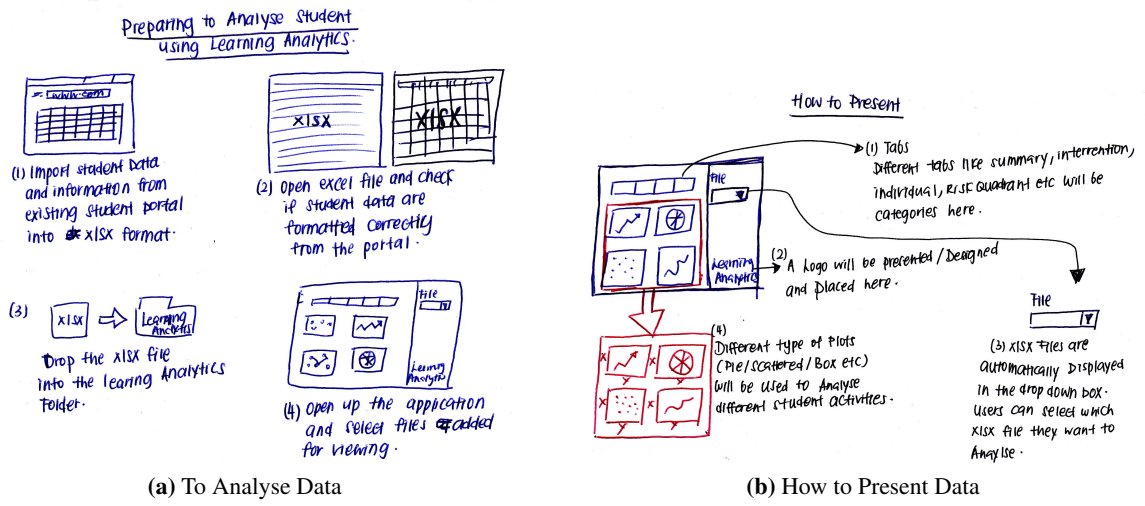 Preparing to Analyse student
using Learning Analytics.
www.com
(1) Import student Data
and information from
existing student portal
into xlsx format.
xlsx
xlsx
(2) Open excel file and check
if student data are
formatted correctly
from the portal.
(3)
xlsx
Learning
Analytics
Drop the xlsx file
into the learing Analytics
Folder.
File
Learning
Analytics
(4) Open up the application
and select files added
for viewing.
(a) To Analyse Data
How to Present
(1) Tabs
Different tabs like summary, interrention,
individual, Risk Quadrant etc will be
categories here.
File
Learning
Analytics
(2)
A Logo will be presented/Designed
and placed here.
File
(3) xlsx Files are
automatically Displayed
in the drop down box.
Users can select which
xlsx file they want to
Anaylse.
(4)
Different type of Plots
(Pie/scattered/Box etc)
will be used to Analyse
different student activities.
x
x
y
y
x
x
y
y
(b) How to Present Data